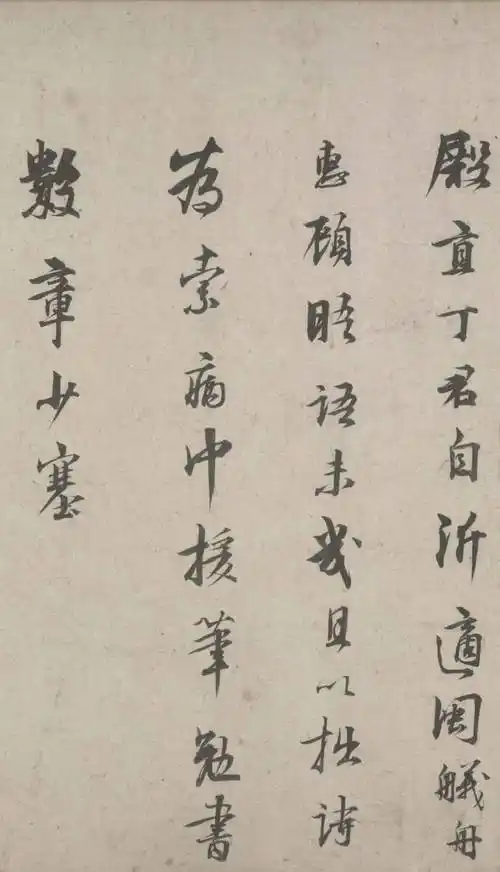 殿直丁君自沂適閩艤舟
惠顧晤語未幾且以拙詩
為索病中援筆勉書
數章少塞